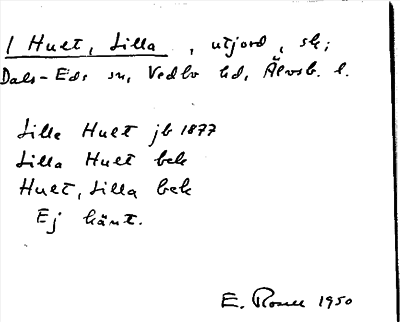 / Huet, Lilla, utjord, sk;
Dals-Eds sn, Vedbo hd, Älvsb. l.
Lilla Huet jb 1877
Lilla Huet bek
Huet, Lilla bek
Ej känt.
E. 1950